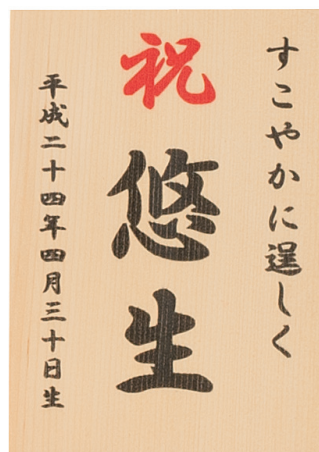 すこやかに逞しく
祝
悠生
平成二十四年四月三十日生